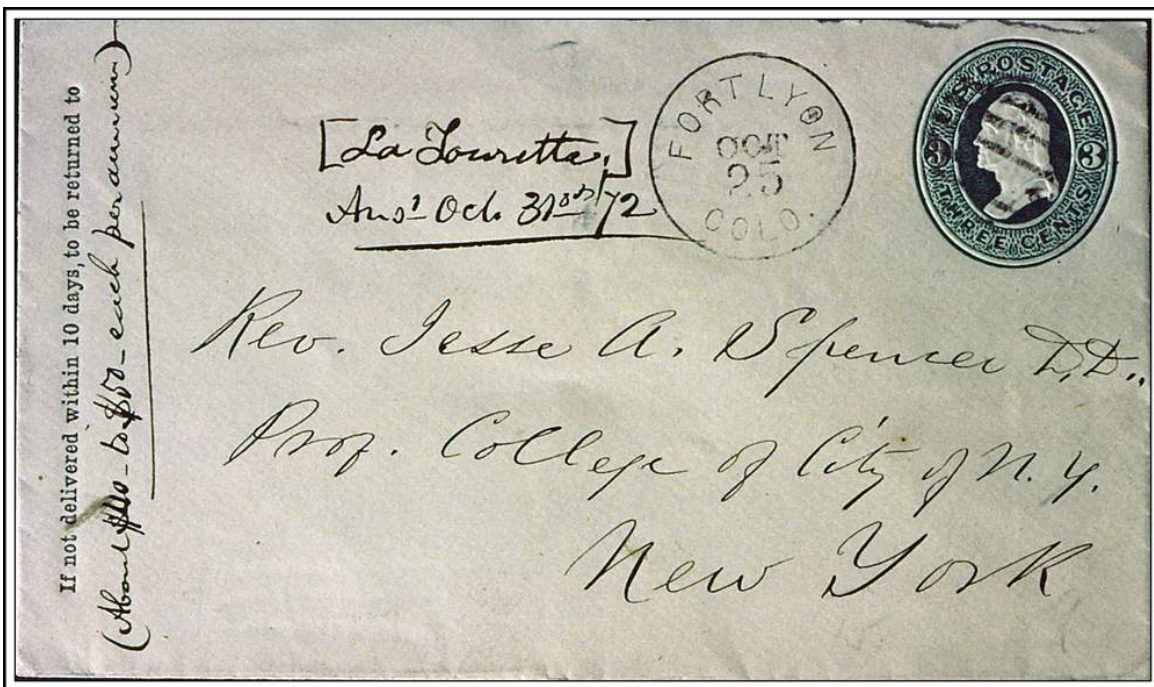 If not delivered within 10 days, to be returned to
(About $40- to $50- each per annum)
[La Tourette,]
Ansd Oct. 31st/72
FORT LYON
OCT
25
COLO.
U.S. POSTAGE
3 3
THREE CENTS
Rev. Jesse A. Spencer D,D.,
Prof. College of City of N.Y.
New York